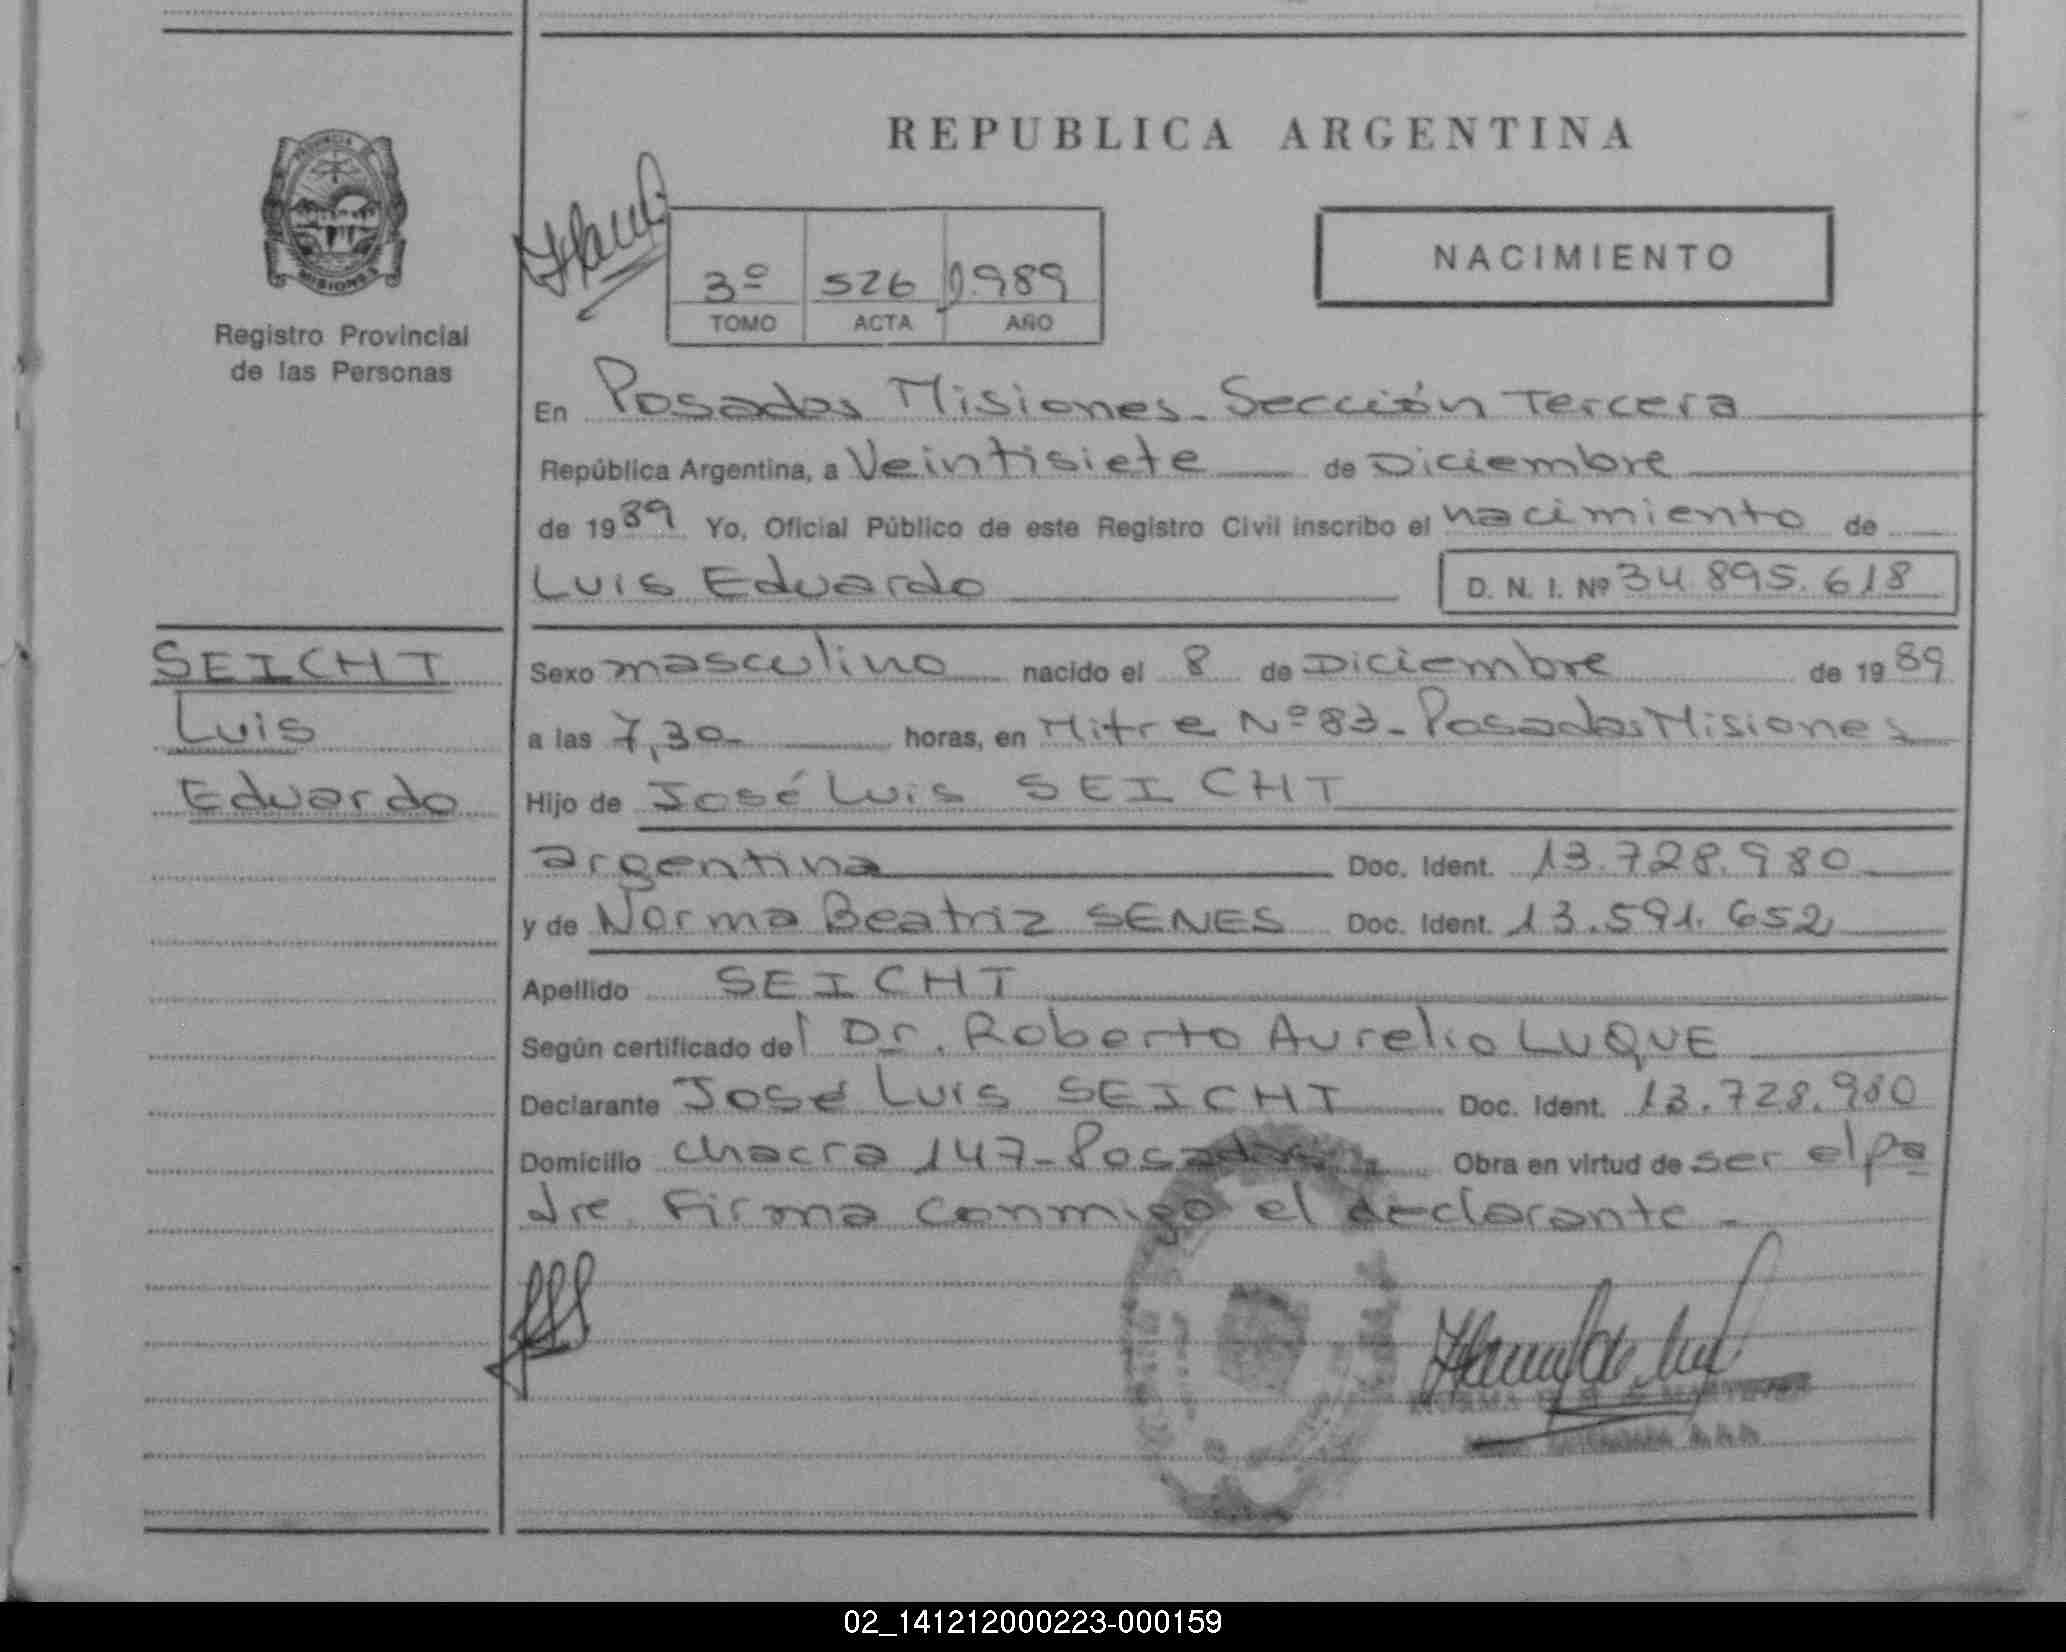 REPUBLICA ARGENTINA
NACIMIENTO
PROVINCIA
MISIONES
Registro Provincial
de las Personas
3º 526 1.989
TOMO ACTA AÑO
En Posadas Misiones - Sección Tercera
República Argentina, a Veintisiete de Diciembre
de 1989 Yo, Oficial Público de este Registro Civil inscribo el nacimiento de
Luis Eduardo D. N. I. Nº 34.895.618
SEICHT
Luis
Eduardo
Sexo masculino nacido el 8 de Diciembre de 1989
a las 7,30 horas, en Mitre Nº 83 - Posadas Misiones
Hijo de José Luis SEICHT
argentina Doc. Ident. 13.728.980
y de Norma Beatriz SENES Doc. Ident. 13.591.652
Apellido SEICHT
Según certificado del Dr. Roberto Aurelio LUQUE
Declarante José Luis SEICHT Doc. Ident. 13.728.980
Domicilio chacra 147 - Posadas Obra en virtud de ser el pa
dre. Firma conmigo el declarante -
NORMA
02_141212000223-000159